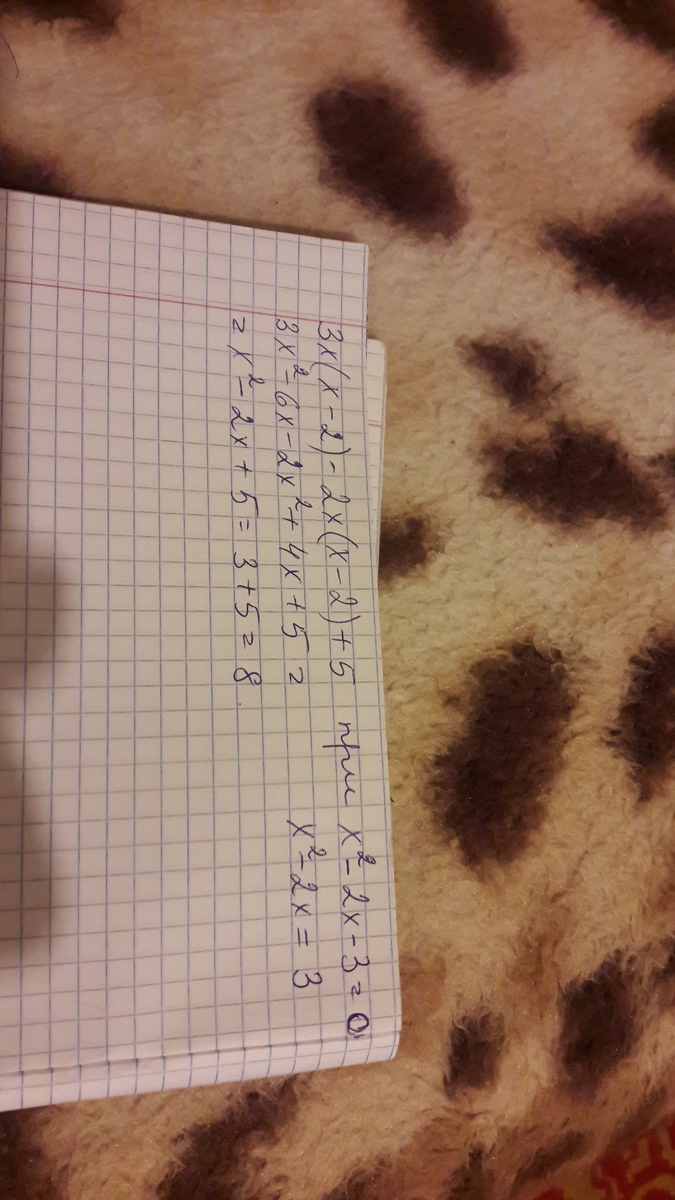 3x(x-2)-2x(x-2)+5 при x²-2x-3=0
3x²-6x-2x²+4x+5= x²-2x=3
=x²-2x+5=3+5=8